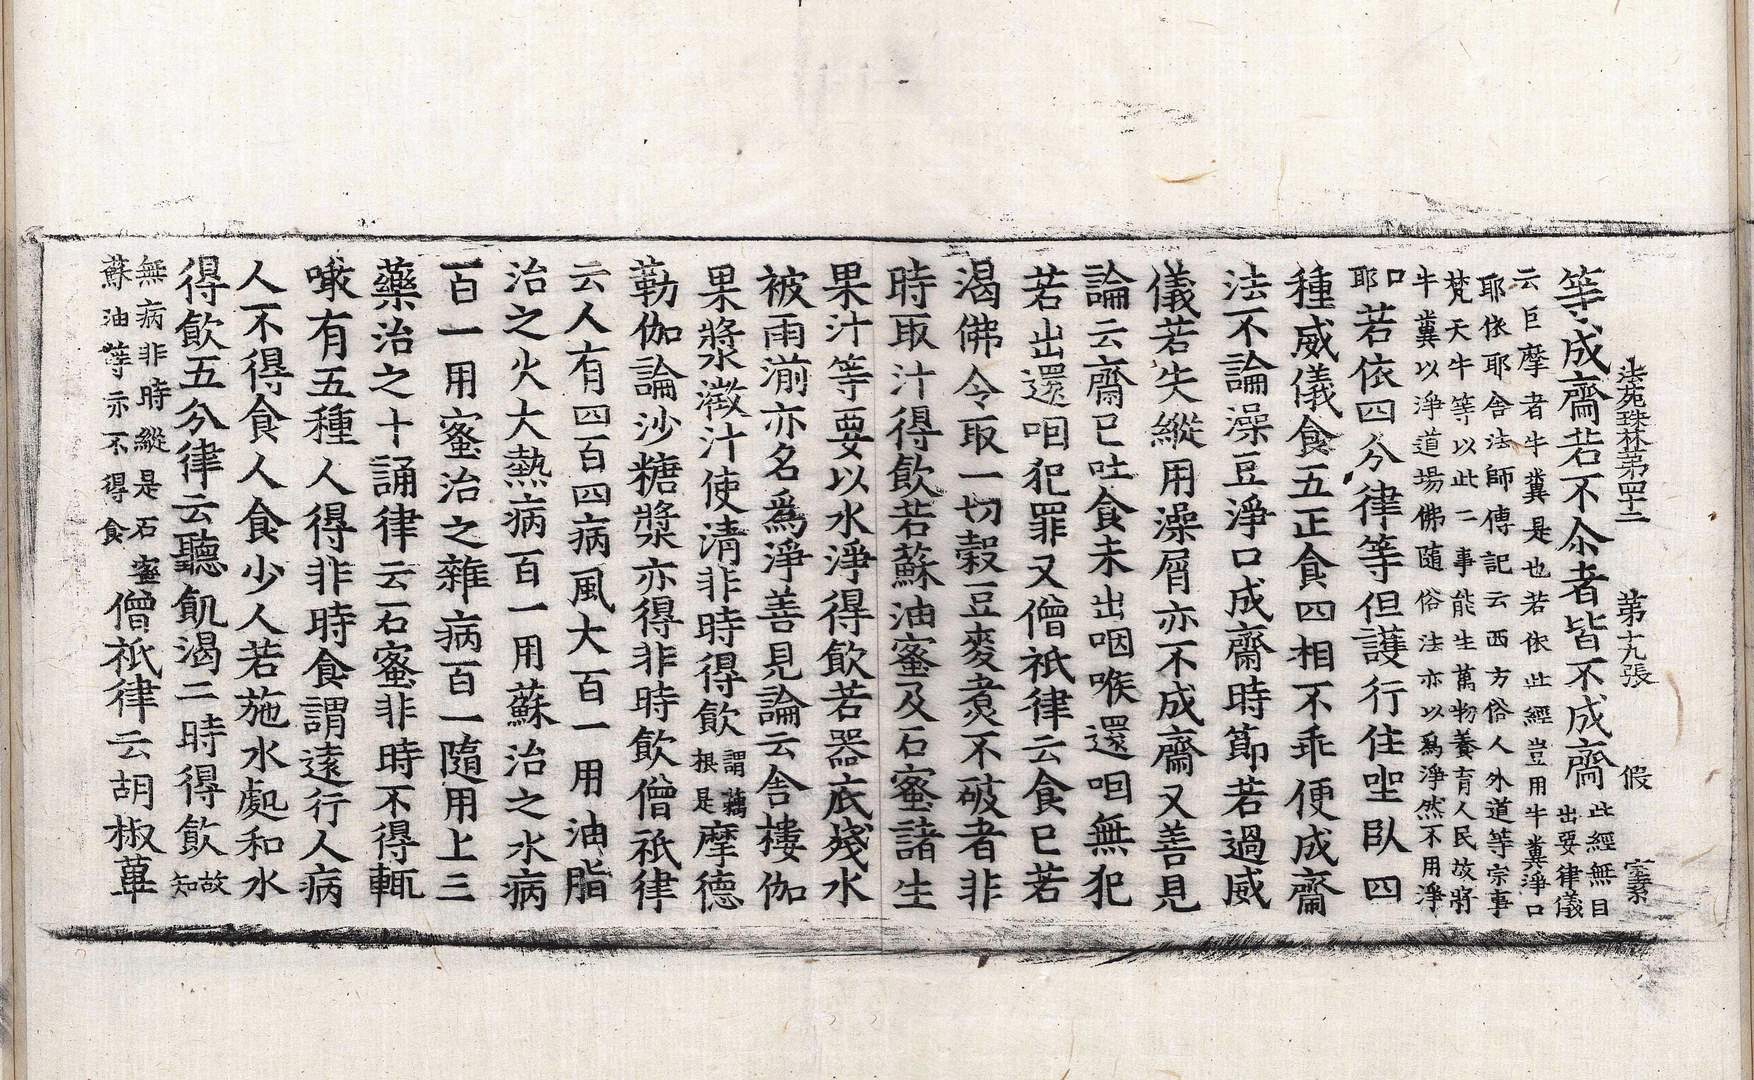 法苑珠林第四十二 第十九張 假
等成齋若不尒者皆不成齋此經無目出要律儀
云巨摩者牛糞是也若依此經豈用牛糞淨口
耶依耶舍法師傳記云西方俗人外道等宗事
梵天牛等以此二事能生萬物養育人民故將
牛糞以淨道場佛隨俗法亦以爲淨然不用淨
口耶若依四分律等但護行住坐臥四
種威儀食五正食四相不乖便成齋
法不論澡豆淨口成齋時節若過威
儀若失縱用澡屑亦不成齋又善見
論云齋已吐食未出咽喉還咽無犯
若出還咽犯罪又僧祇律云食已若
渴佛令取一切穀豆麥煮不破者非
時取汁得飲若蘇油蜜及石蜜諸生
果汁等要以水淨得飲若器底殘水
被雨湔亦名爲淨善見論云舍樓伽
果漿澂汁使清非時得飲謂藕根是摩德
勒伽論沙糖漿亦得非時飲僧祇律
云人有四百四病風大百一用油脂
治之火大熱病百一用蘇治之水病
百一用蜜治之雜病百一隨用上三
藥治之十誦律云石蜜非時不得輒
噉有五種人得非時食謂遠行人病
人不得食人食少人若施水處和水
得飲五分律云聽飢渴二時得飲故知
無病非時縱是石蜜蘇油等亦不得食僧祇律云胡椒蓽